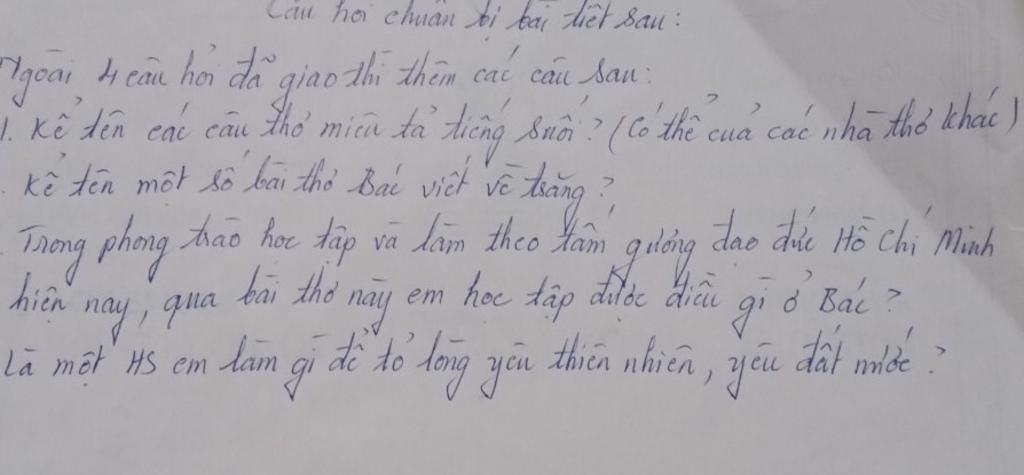 Câu hỏi chuẩn bị bài tiết sau:
Ngoài 4 câu hỏi đã giao thì thêm các câu sau:
1. Kể tên các câu thơ miêu tả tiếng suối? (Có thể của các nhà thơ khác)
. Kể tên một số bài thơ Bác viết về trăng?
. Trong phong trào học tập và làm theo tấm gương đạo đức Hồ Chí Minh
hiện nay, qua bài thơ này em học tập được điều gì ở Bác?
Là một HS em làm gì để tỏ lòng yêu thiên nhiên, yêu đất nước?